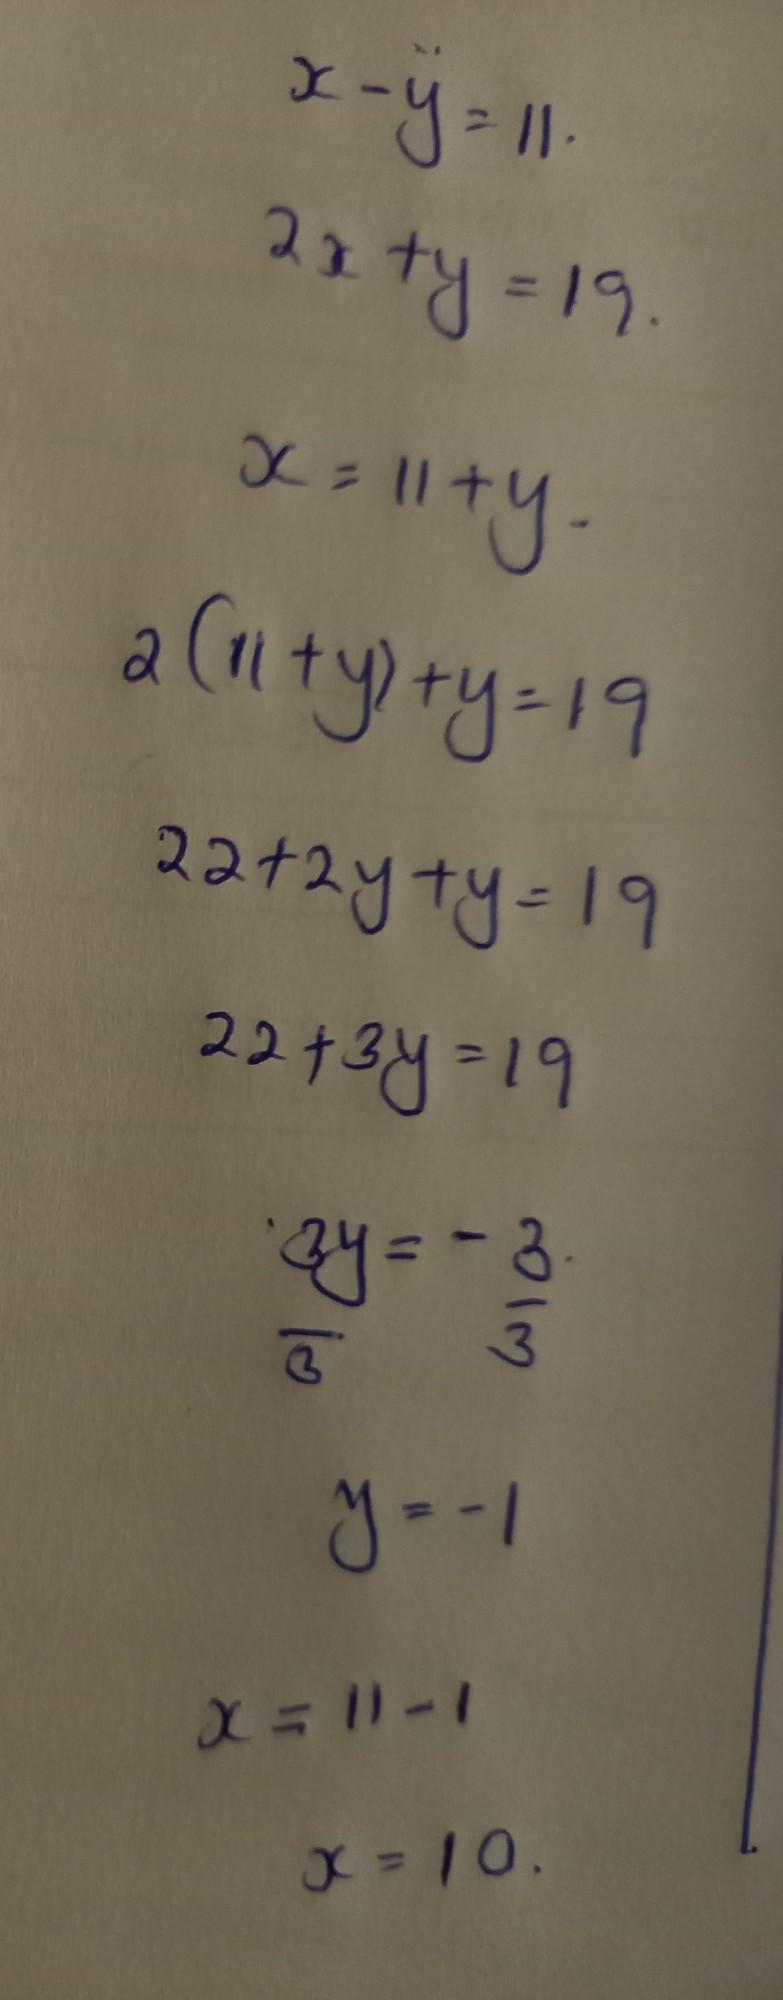 x - y = 11.
2x + y = 19.
x = 11 + y.
2(11 + y) + y = 19
22 + 2y + y = 19
22 + 3y = 19
3y = - 3.
3 3
y = -1
x = 11 - 1
x = 10.